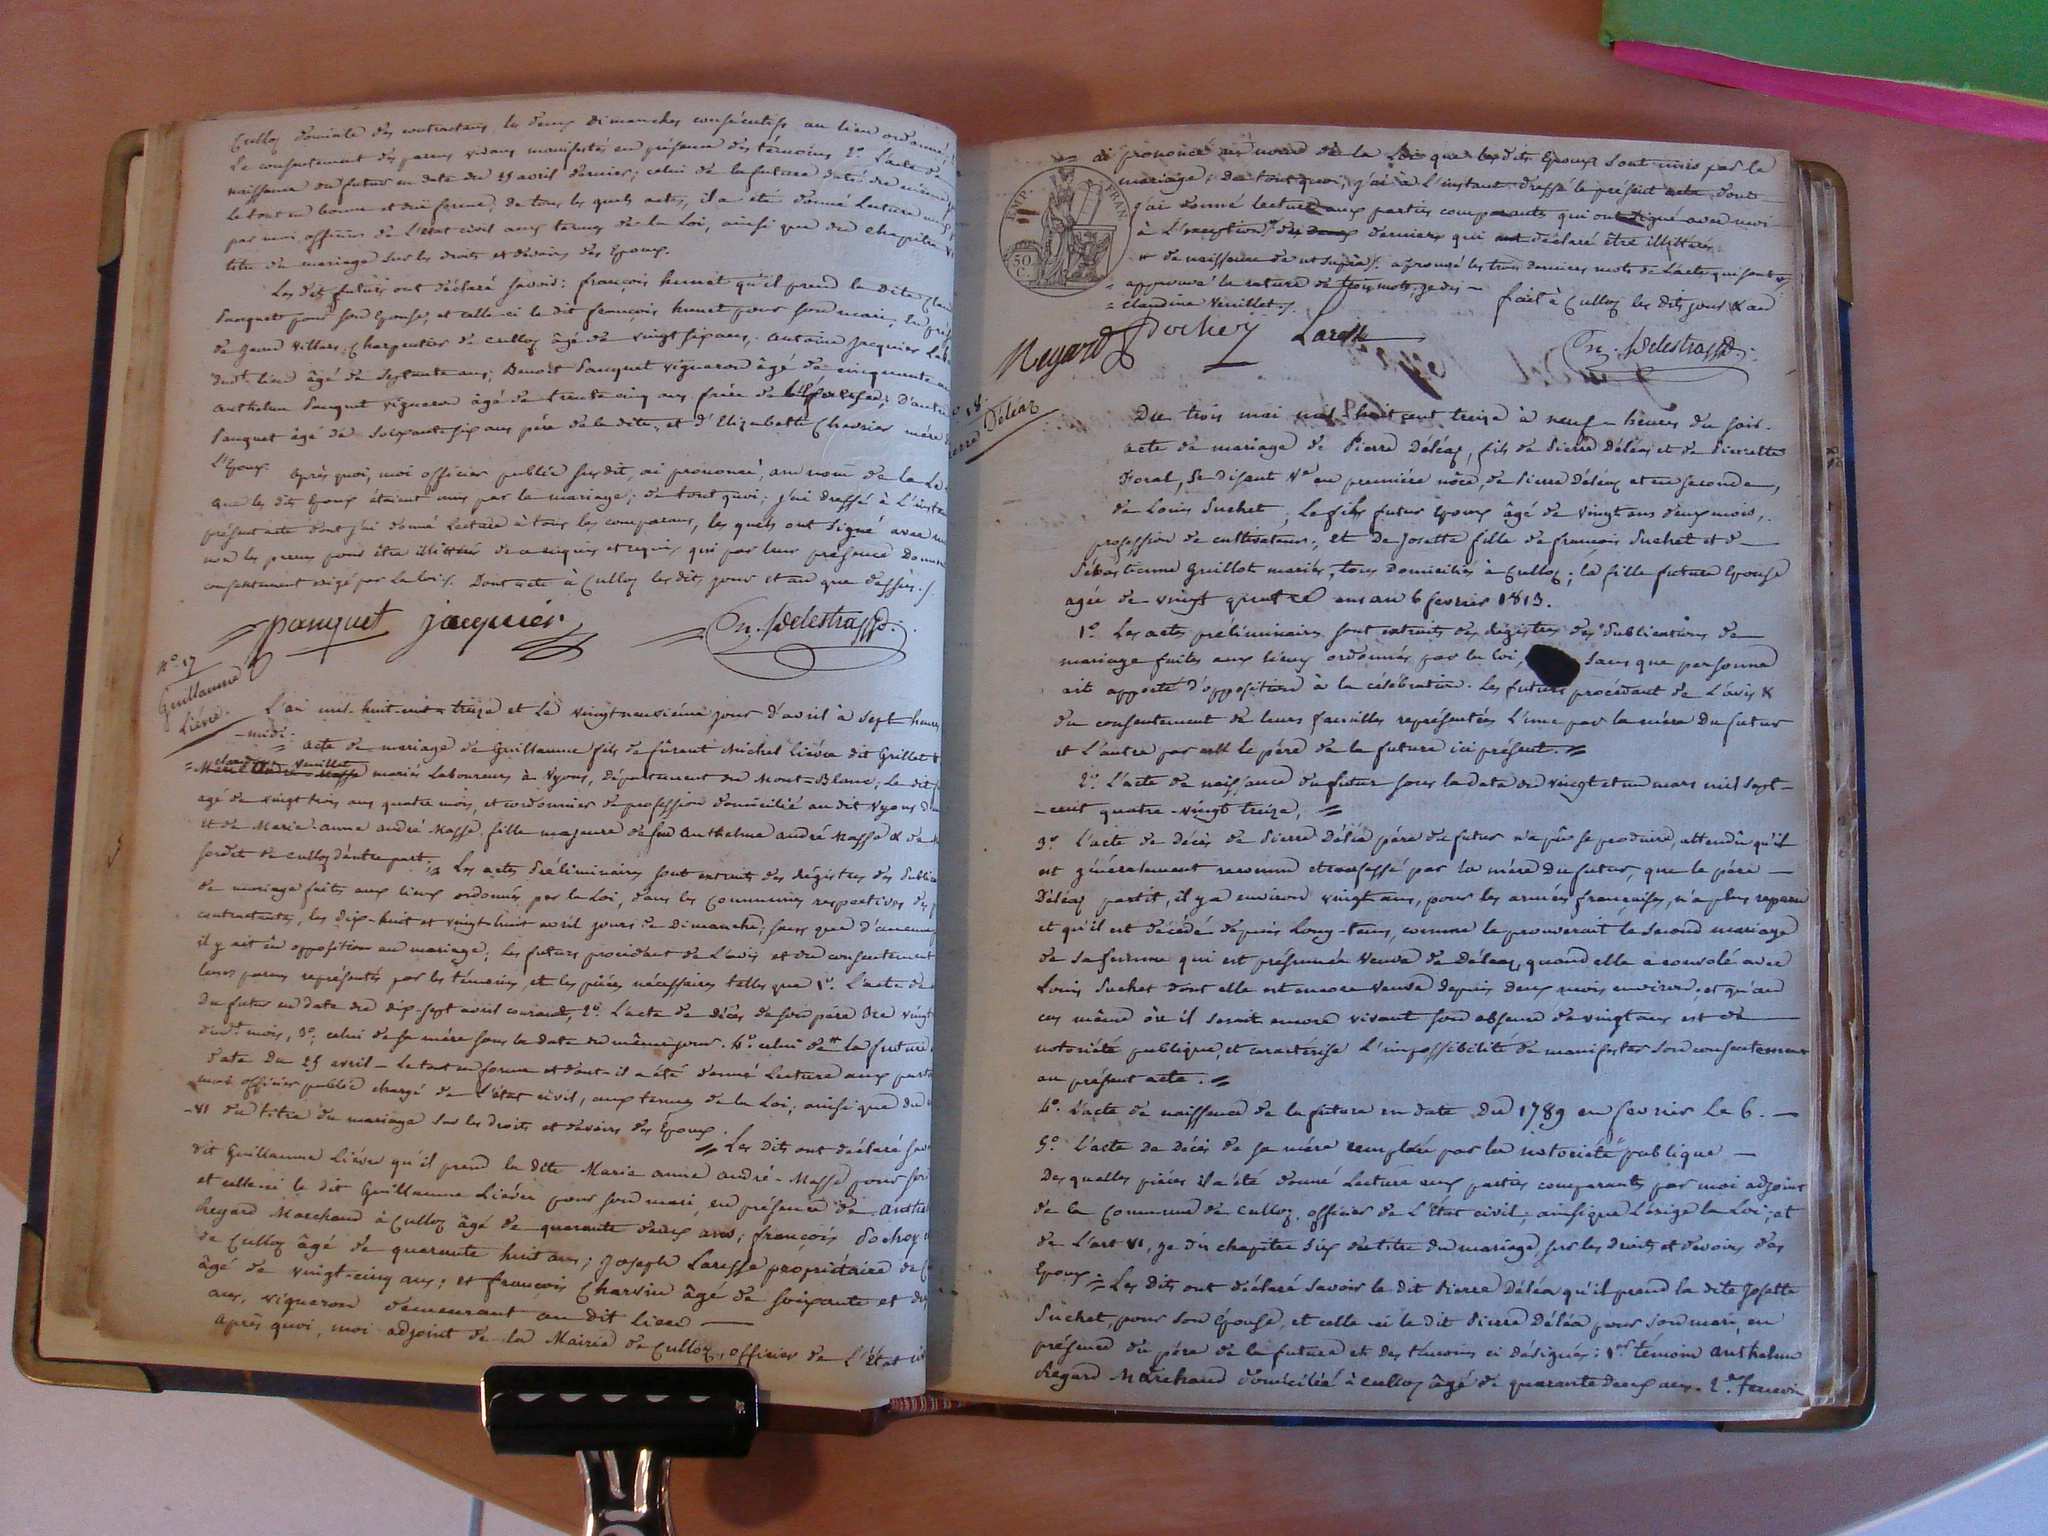 Culloz domicile des contractans, les deux dimanches consécutifs au lieu ordonné,
Le consentement des parens vivans manifestés en présence des témoins 2º. L'acte de
naissance du futur en date du 25 avril dernier; celui de la future daté du même
Le tout en bonne et due forme; de tous les quels actes, il a été donné lecture
par moi officier de l'état civil aux termes de la Loi, ainsi que du chapitre
titre du mariage sur les droits et devoirs des Epoux.
Les dits futurs ont déclaré savoir: françois hunet qu'il prend la dite
Pauquet pour son Epouse, et celle-ci le dit françois hunet pour son mari, En
de Villars, Charpentier de culloz âgé de vingt six ans. Antoine Jacquier
dudt. lieu âgé de septante ans; Benoit Pauquet vigneron âgé de cinquante
anthelme Pauquet vigneron âgé de trente cinq ans frère de l'Epouse; D'
Pauquet âgé de soixante six ans père de la dite, et d'Elizabeth Chevrier mère
L'Epoux.
Après quoi, moi officier public susdit, ai prononcé, au nom de la
que les dits Epoux étaient unis par le mariage; de tout quoi; j'ai dressé à L'
présent acte dont j'ai donné lecture à tous les comparans, les quels ont signé avec
non les preux pour être illittérés de ce enquis et requis, qui par leur présence
consentement exigé par la loi. Dont acte à Culloz les dits jour et an que dessus./.
pauquet jacquier On. Delestrasse
Nº. 17
Guillaume
Liévre.
L'an mil-huit-cent treize et le vingt neuvième jour d'avril à sept heures
-midi.
= acte de mariage de Guillaume fils de fûrent Michel Liévre dit Grillet
claudine Venillet
mariés Laboureurs à Vyons, département du Mont-Blanc; Le dit
agé de vingt trois ans quatre mois, et cordonnier de profession domicilié au dit Vyons
et de Marie-anne andré Masse, fille majeure de feu Anthelme andré Masse & de
de culloz d'autre part; Les actes Préliminaires sont extraits des Régistres des
de mariage faites aux lieux ordonnés par la Loi, dans les Communes respectives des
contractantes, les dix-huit et vingt-huit avril jours de Dimanche; sans que d'aucune
il y ait eu opposition au mariage; Les futurs procédant de L'avis et du consentement
leurs parens représentés par les témoins, et les pièces nécessaires telles que 1º. L'acte de
du futur en date du dix-sept avril courant, 2º. L'acte de décès de son père du vingt
dudt. mois, 3º; celui de sa mère sous la date du même jour. 4º. celui de la future
date du 25 avril - Le tout en forme et dont il a été donné lecture aux
moi officier public chargé de L'état civil, aux termes de la Loi; ainsi que du
-VI du titre du mariage sur les droits et devoirs des Epoux.
= Les Dits ont déclaré
dit Guillaume Liévre qu'il prend la dite Marie anne andré-Masse pour
et celle-ci le dit Guillaume Liévre pour son mari, en présence de
Regard Marchand à Culloz âgé de quarante deux ans; françois Pochey
de Culloz âgé de quarante huit ans; Joseph Laresse propriétaire de
âgé de vingt-cinq ans; et françois Charvin âgé de soixante et
ans, vigneron demeurant au dit lieu —
Après quoi, moi adjoint de la Mairie de Culloz, officier de L'Etat
EMP. FRAN.
50 C.
ai prononcé au nom de la Loi que les dits Epoux sont unis par le
mariage; De tout quoi, j'ai à L'instant dressé le présent acte dont
j'ai donné lecture aux parties comparantes qui ont signé avec moi
à L'exception des deux derniers qui ont déclaré être illittérés.
de naissance de ut suprà/. approuvé les trois derniers mots de L'acte qui sont
approuvé la rature de trois mots, je dis —
claudine Venillet./.
fait à Culloz les dits jour & an
Regard Pochey Laresse On. Delestrasse
18.
Pierre Déléaz
Du trois mai mil-huit cent treize à neuf heures du soir.
acte de mariage de Pierre Déléaz, fils de Pierre Déléaz et de Pierrette
Foral, se disant Ve. en première nôce, de Pierre Déléaz et en seconde,
de Louis Suchet; Le fils futur Epoux âgé de vingt ans deux mois,
profession de cultivateur; et De Josette fille de francois Suchet et de
Sébastienne Guillot mariés, tous domiciliés à Culloz; la fille future Epouse
agée de vingt quatre ans au 6 fevrier 1813.
1º. Les actes préliminaires sont extraits des Régistres des Publications de
mariage faites aux lieux ordonnés par la loi, sans que personne
ait apporté d'opposition à la célébration. Les futurs procédant de L'avis &
du consentement de leurs familles représentées L'une par la mère du futur
et L'autre par le père de la future ici présent. =
2º. L'acte de naissance du futur sous la date du vingt et un mars mil sept-
-cent quatre-vingt treize; =
3º. L'acte de décès de Pierre Déléa père du futur n'a pû se produire, attendu qu'il
est généralement reconnu et confessé par la mère du futur, que le père —
Déléaz partit, il y a environ vingt ans, pour les armées françaises, n'a plus reparu
et qu'il est décédé depuis Long-tems, comme le prouverait le second mariage
de sa femme qui est présumée Veuve de Déléaz, quand elle a convolé avec
Louis Suchet dont elle est encore Veuve depuis deux mois environ; et qu'au
cas même où il serait encore vivant son absence de vingt ans est de
notoriété publique, et caractérise L'impossibilité de manifester son consentement
au présent acte. =
4º. L'acte de naissance de la future en date du 1789 en fevrier le 6. —
5º. L'acte de Décès de sa mère remplacé par la notoriété publique —
Des quelles pièces il a été donné Lecture aux parties comparantes par moi adjoint
de la commune de culloz, officier de L'Etat civil; ainsi que L'exige la Loi; et
de L'art VI, je dis chapitre six du titre du mariage, sur les droits et devoirs des
Epoux = Les dits ont déclaré savoir le dit Pierre Déléa qu'il prend la dite Josette
Suchet, pour son Epouse, et celle-ci le dit Pierre Déléa pour son mari, en
présence du père de la future et des témoins ci désignés: 1er. témoin Anthelme
Regard Marchand domicilié à culloz âgé de quarante deux ans. 2e.